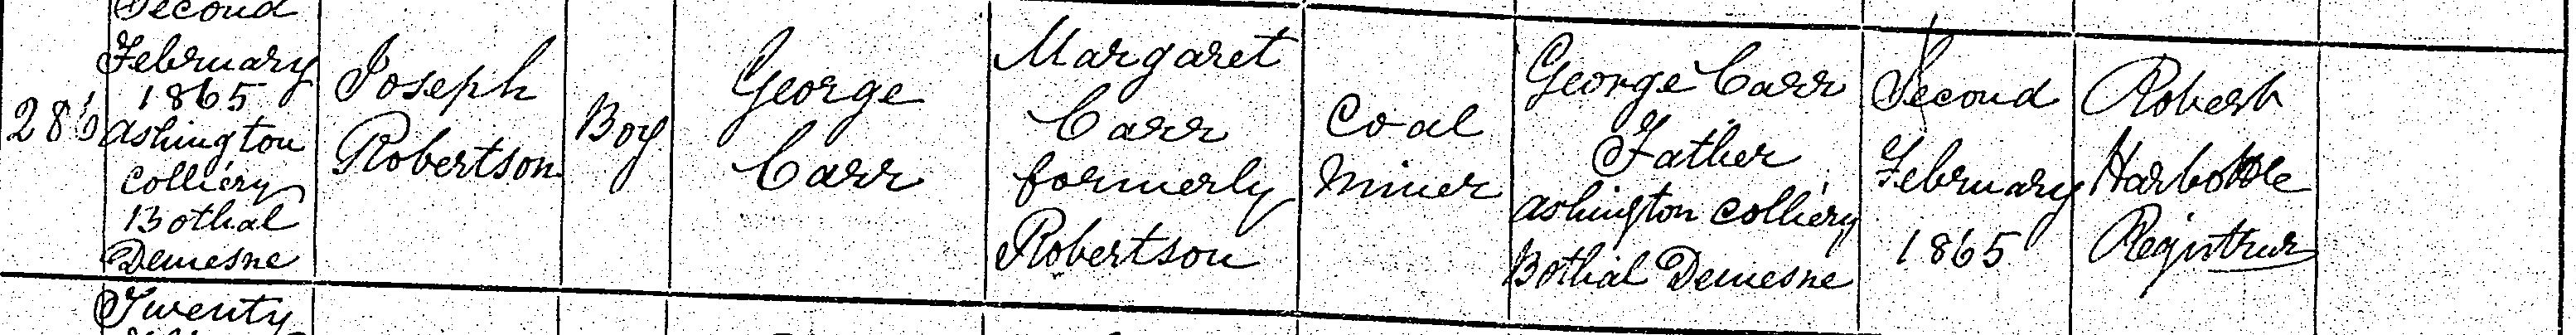 Second
February
1865
Ashington
Colliery
Bothal
Demesne
Joseph
Robertson
Boy
George
Carr
Margaret
Carr
formerly
Robertson
Coal
Miner
George Carr
Father
Ashington Colliery
Bothal Demesne
Second
February
1865
Robert
Harbottle
Registrar
Twenty